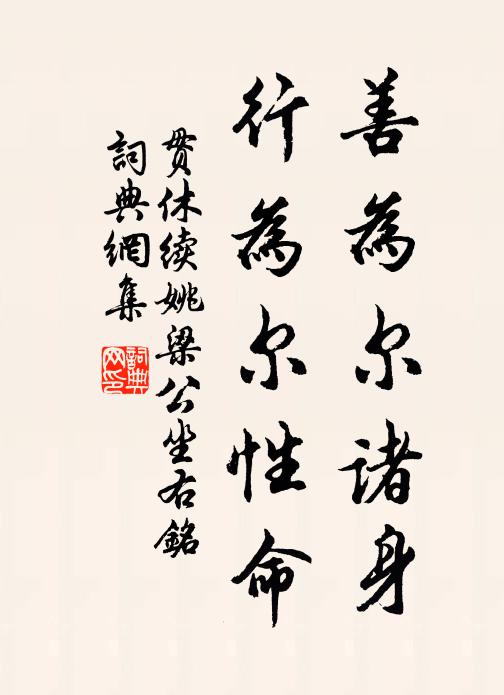 善為尔诸身
行為尔性命
贯休续姚梁公坐右銘
詞典網集
詞典網印